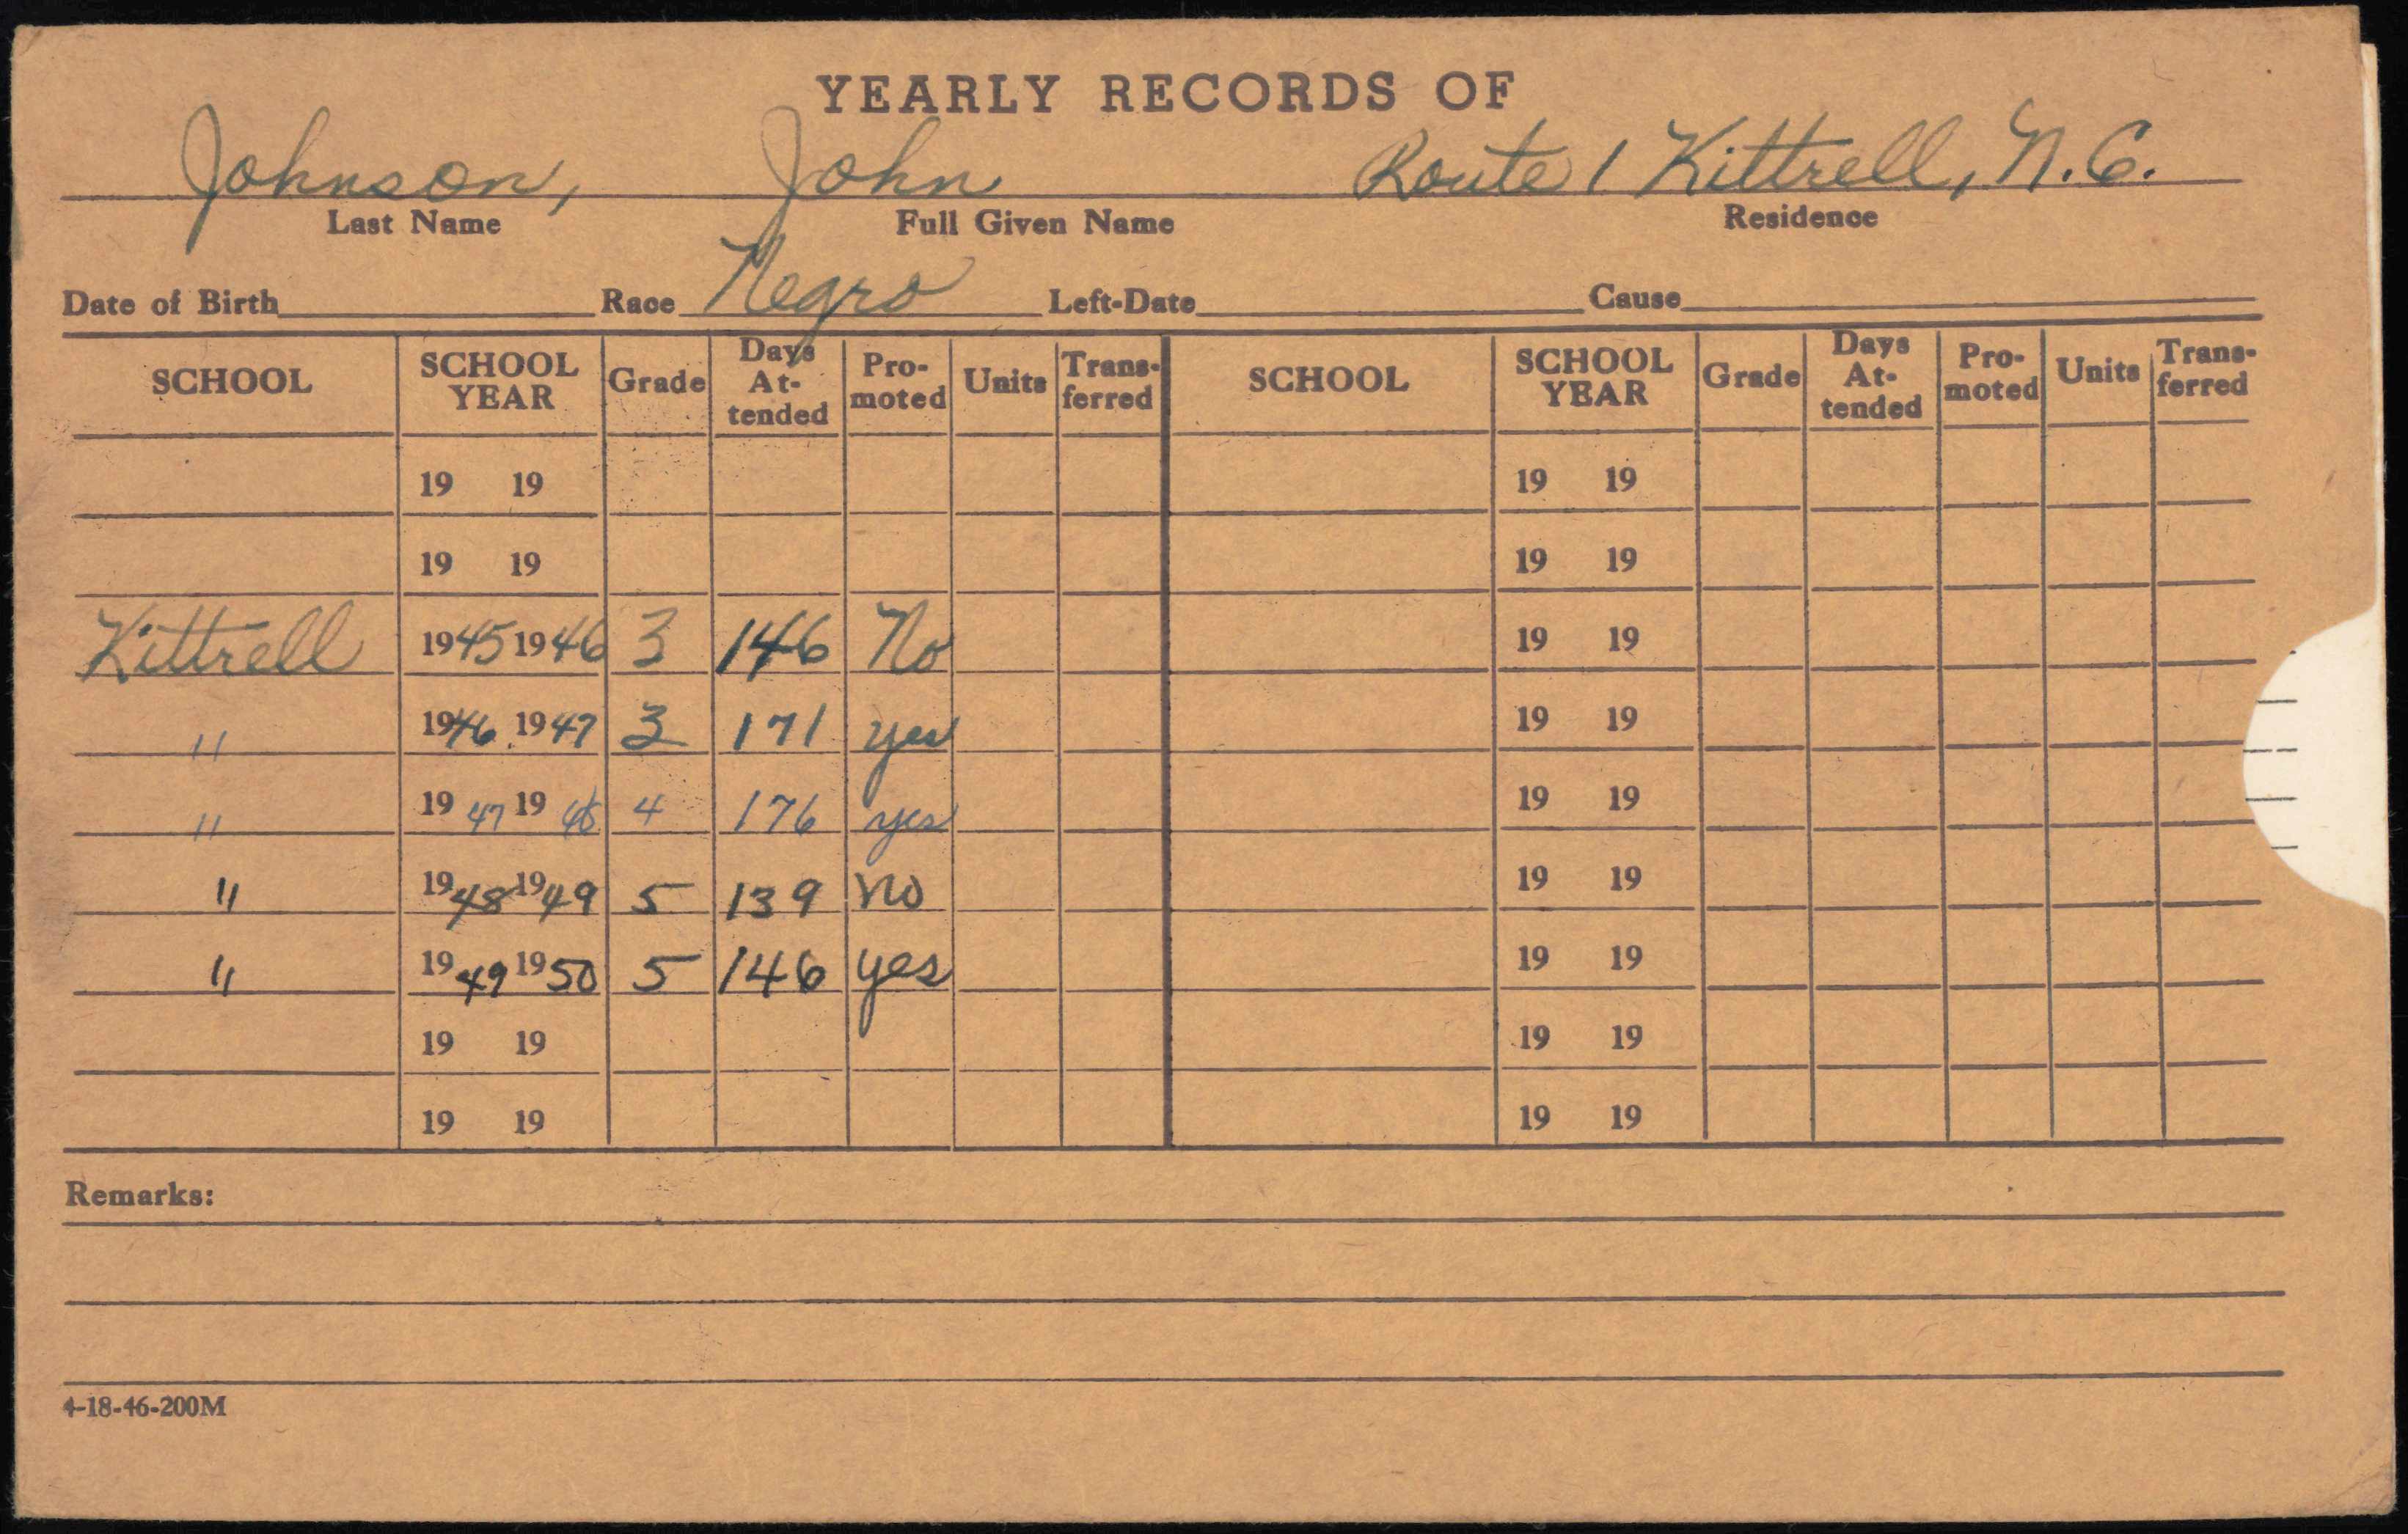 YEARLY RECORDS OF
Johnson, John Route 1 Kittrell, N.C.
Last Name Full Given Name Residence
Date of Birth Race Negro Left-Date Cause
SCHOOL SCHOOL YEAR Grade Days At-tended Pro-moted Units Trans-ferred SCHOOL SCHOOL YEAR Grade Days At-tended Pro-moted Units Trans-ferred
19 19 19 19
19 19 19 19
Kittrell 1945 1946 3 146 No 19 19
" 1946 1947 3 171 yes 19 19
" 1947 1948 4 176 yes 19 19
" 1948 1949 5 139 no 19 19
" 1949 1950 5 146 yes 19 19
19 19 19 19
19 19 19 19
Remarks:
4-18-46-200M